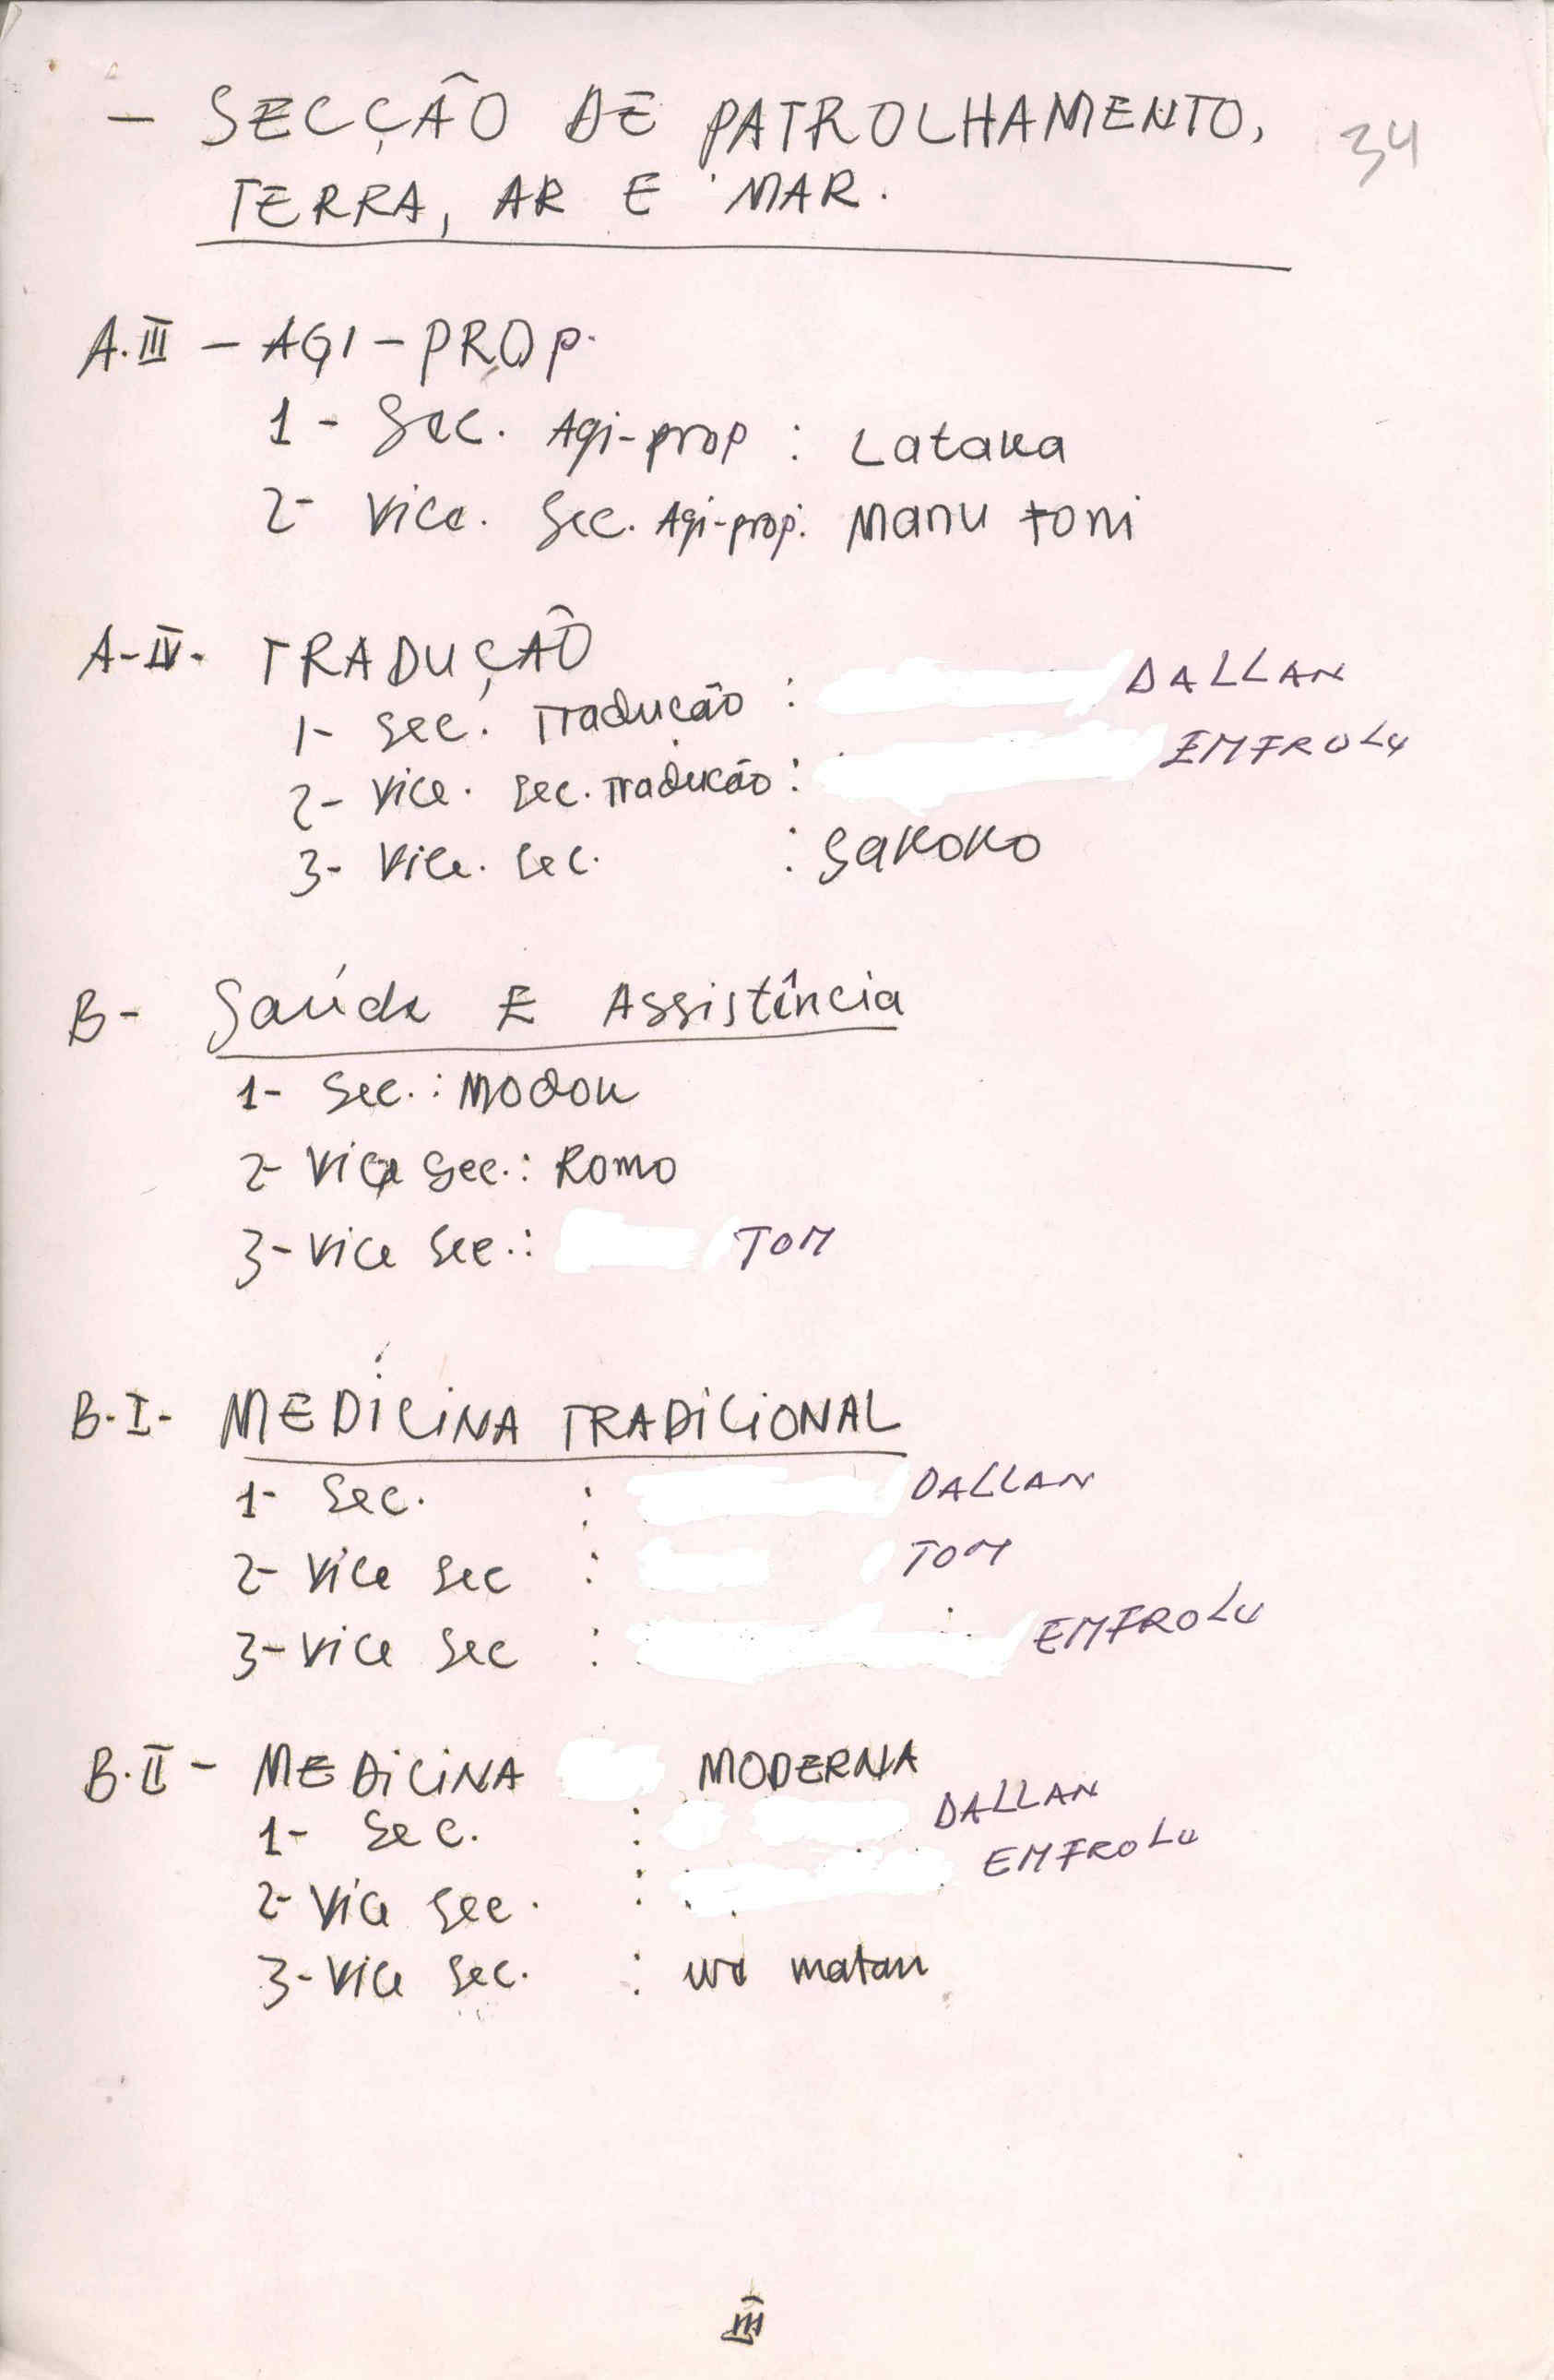 - SECÇÂO DE PATROLHAMENTO, 34
TERRA, AR E MAR.
A.III - AGI-PROP.
1- Sec. Agi-prop : Lataka
2- Vice. Sec. Agi-prop: Manu toni
A-IV- TRADUÇÂO
1- Sec. Tradução : DALLAN
2- Vice. Sec. Tradução : EMFROLU
3- Vice. Sec. : Sakoko
B- Saúde E Assistência
1- Sec. : Modok
2- Vice Sec. : Romo
3- Vice Sec. : TOM
B.I- MEDICINA TRADICIONAL
1- Sec. : DALLAN
2- Vice Sec : TOM
3- Vice Sec : EMFROLU
B.II- MEDICINA MODERNA
1- Sec. : DALLAN
2- Vice Sec. : EMFROLU
3- Vice Sec. : matan
III